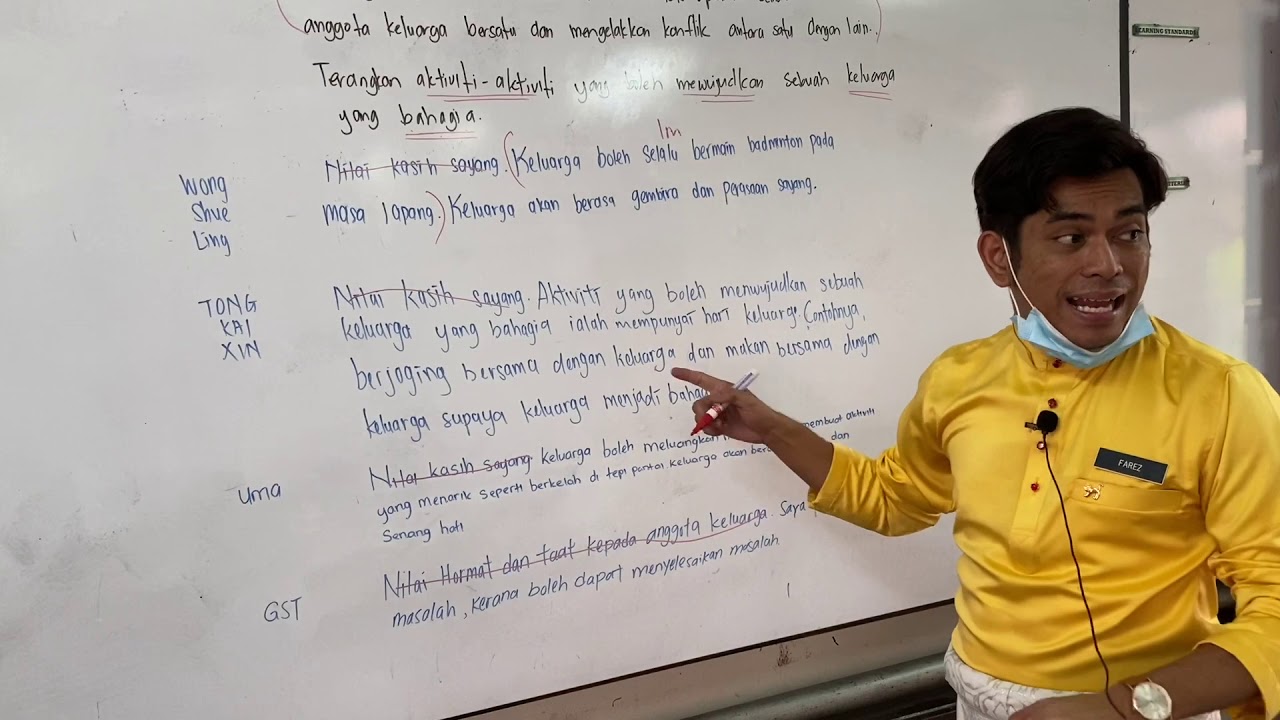 anggota keluarga bersatu dan mengelakkan konflik antara satu dengan lain.
Terangkan aktiviti-aktiviti yang boleh mewujudkan sebuah keluarga
yang bahagia.
1m
Wong
Shue
Ling
Nilai kasih sayang. (Keluarga boleh selalu bermain badminton pada
masa lapang.) Keluarga akan berasa gembira dan perasaan sayang.
TONG
KAI
XIN
Nilai kasih sayang. Aktiviti yang boleh menwujudkan sebuah
keluarga yang bahagia ialah mempunyai hari keluarga. Contohnya,
berjoging bersama dengan keluarga dan makan bersama dengan
keluarga supaya keluarga menjadi
uma
Nilai kasih sayang keluarga boleh meluangkan membuat aktiviti
yang menarik seperti berkelah di tepi pantai keluarga akan dan
Senang hati
GST
Nilai Hormat dan taat kepada anggota keluarga. Saya
masalah, kerana boleh dapat menyelesaikan masalah
FAREZ
LEARNING STANDARDS